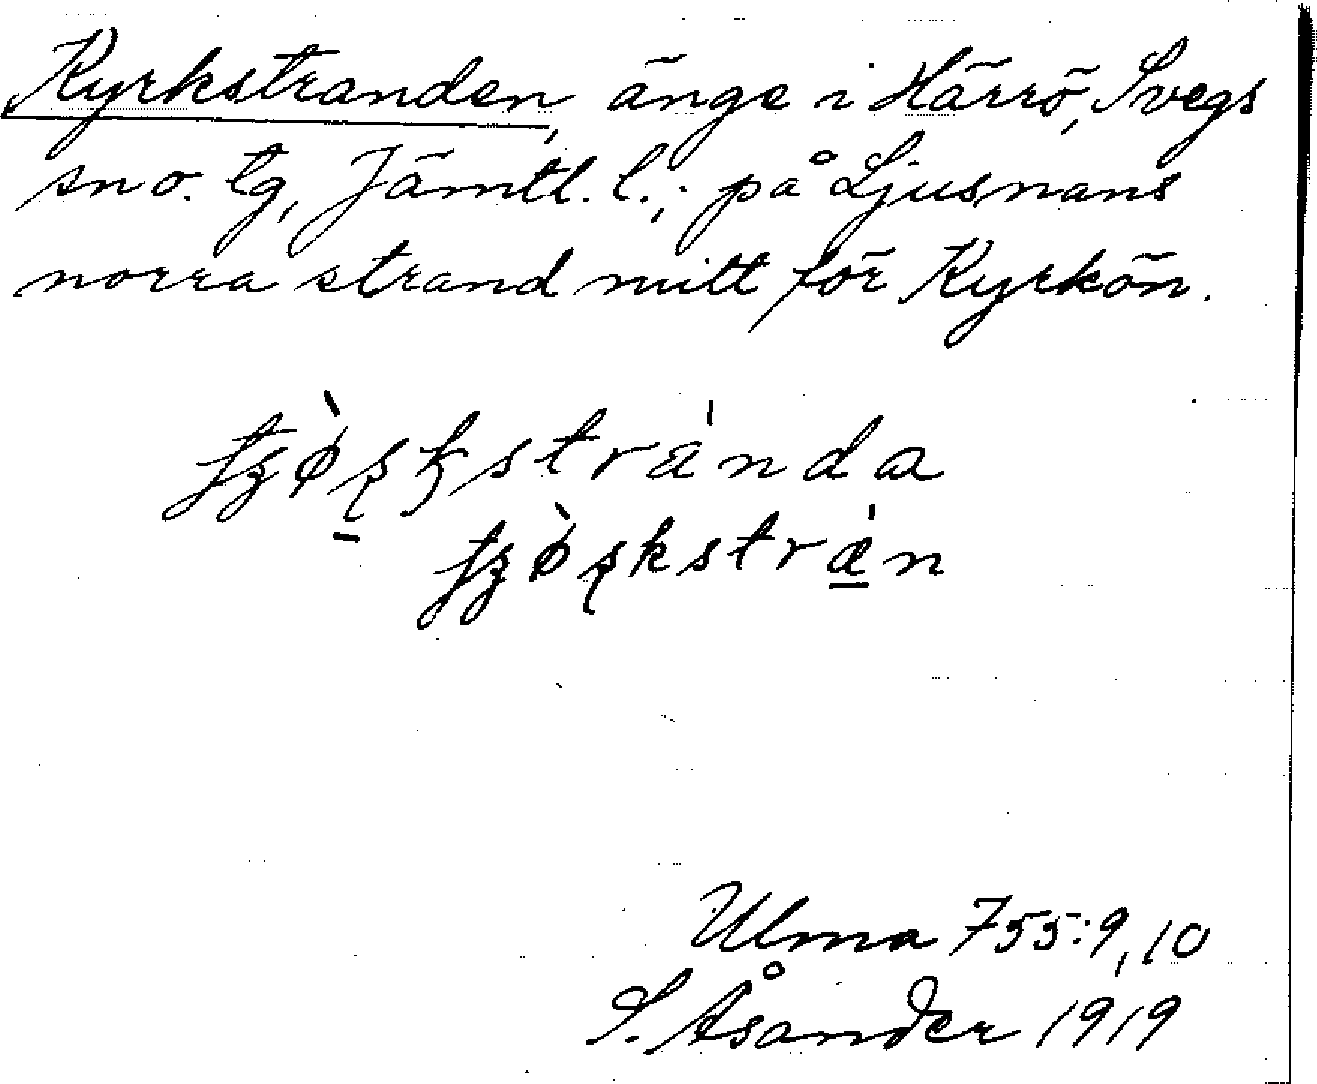 Kyrkstranden, änge i Härrö, Svegs
sn o. tg, Jämtl. l.; på Ljusnans
norra strand mitt för Kyrkön.
Ulma 755:9,10
S. Åsander 1919